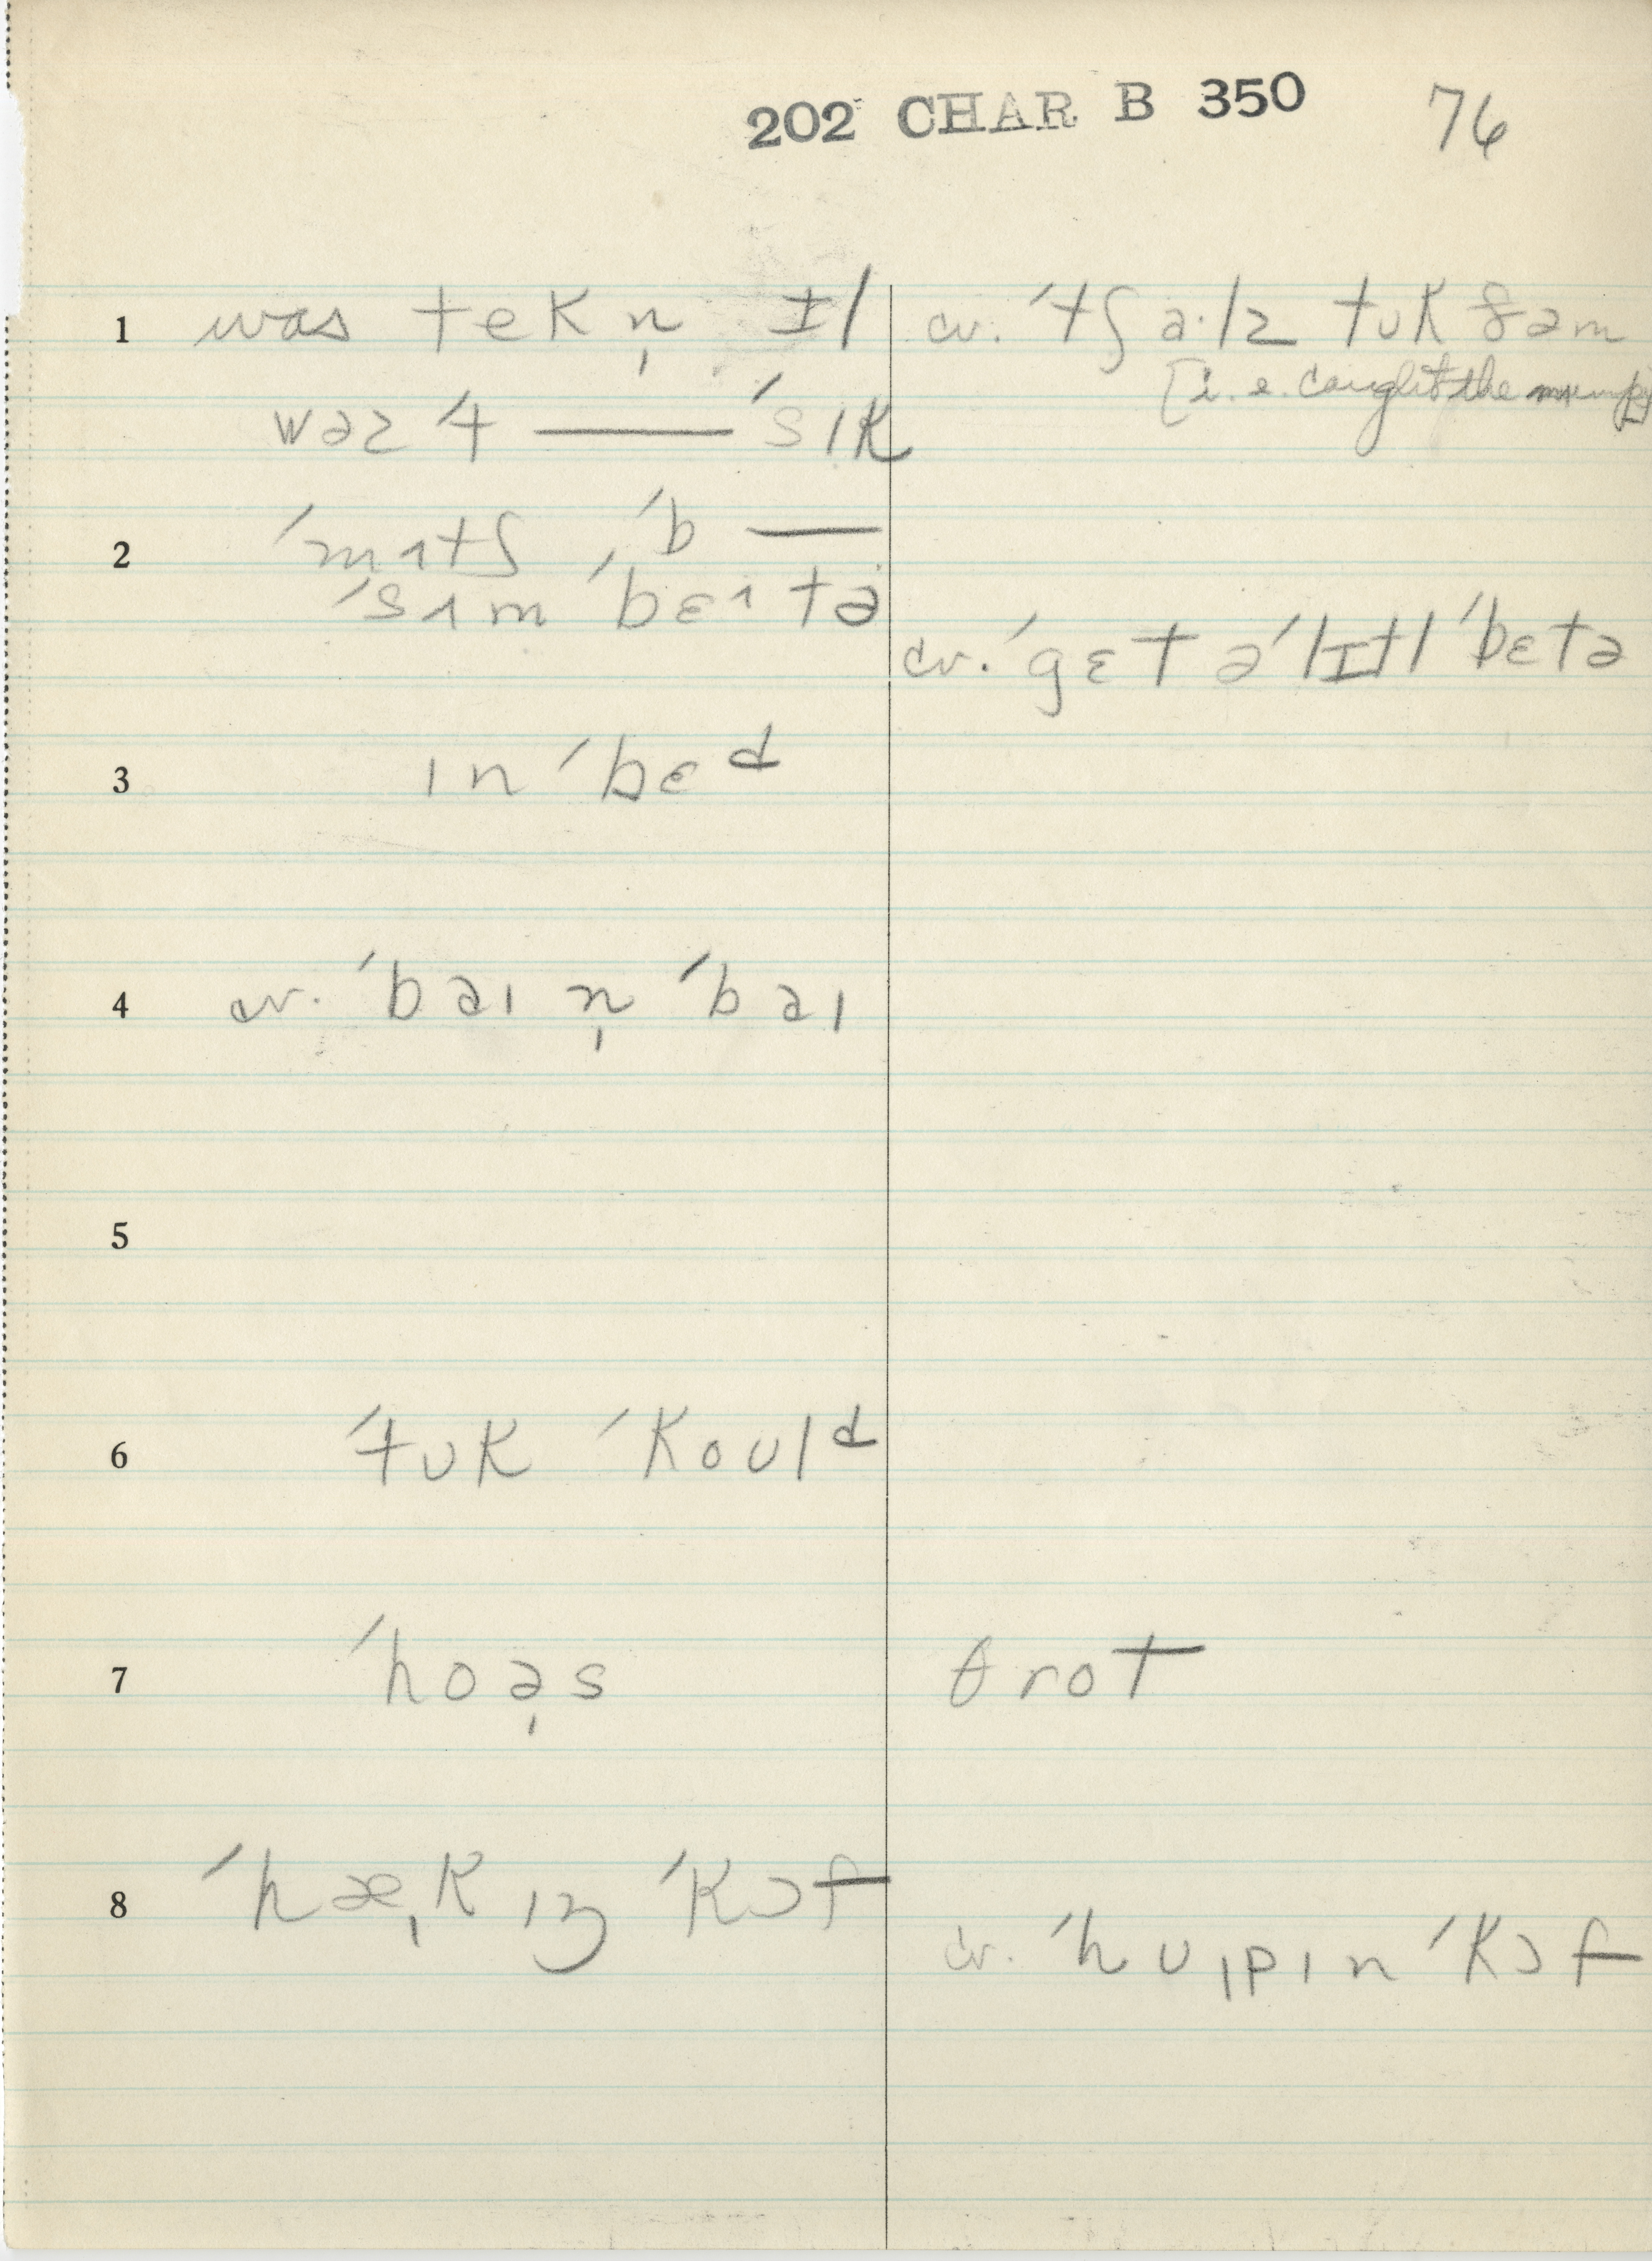 202 CHAR B 350 76
1 was tekn̩ ɪl cv. ˊtʃaˑlz tʊk ðəm
[i.e. caught the mumps]
wəz ˊt — ˊsɪk
2 ˊmɪtʃ ˊb —
ˊsɪm ˊbɛɪtə
cv. ˊgɛt əˊlɪtl ˊbɛtə
3 ɪn ˊbɛd
4 cv. ˊbəɪ n̩ ˊbəɪ
5
6 ˊtʊk ˊkoʊld
7 ˊhoə̩s θrot
8 ˊhæˌkɪŋ ˊkɔf
cv. ˊhʊˌpɪn ˊkɔf